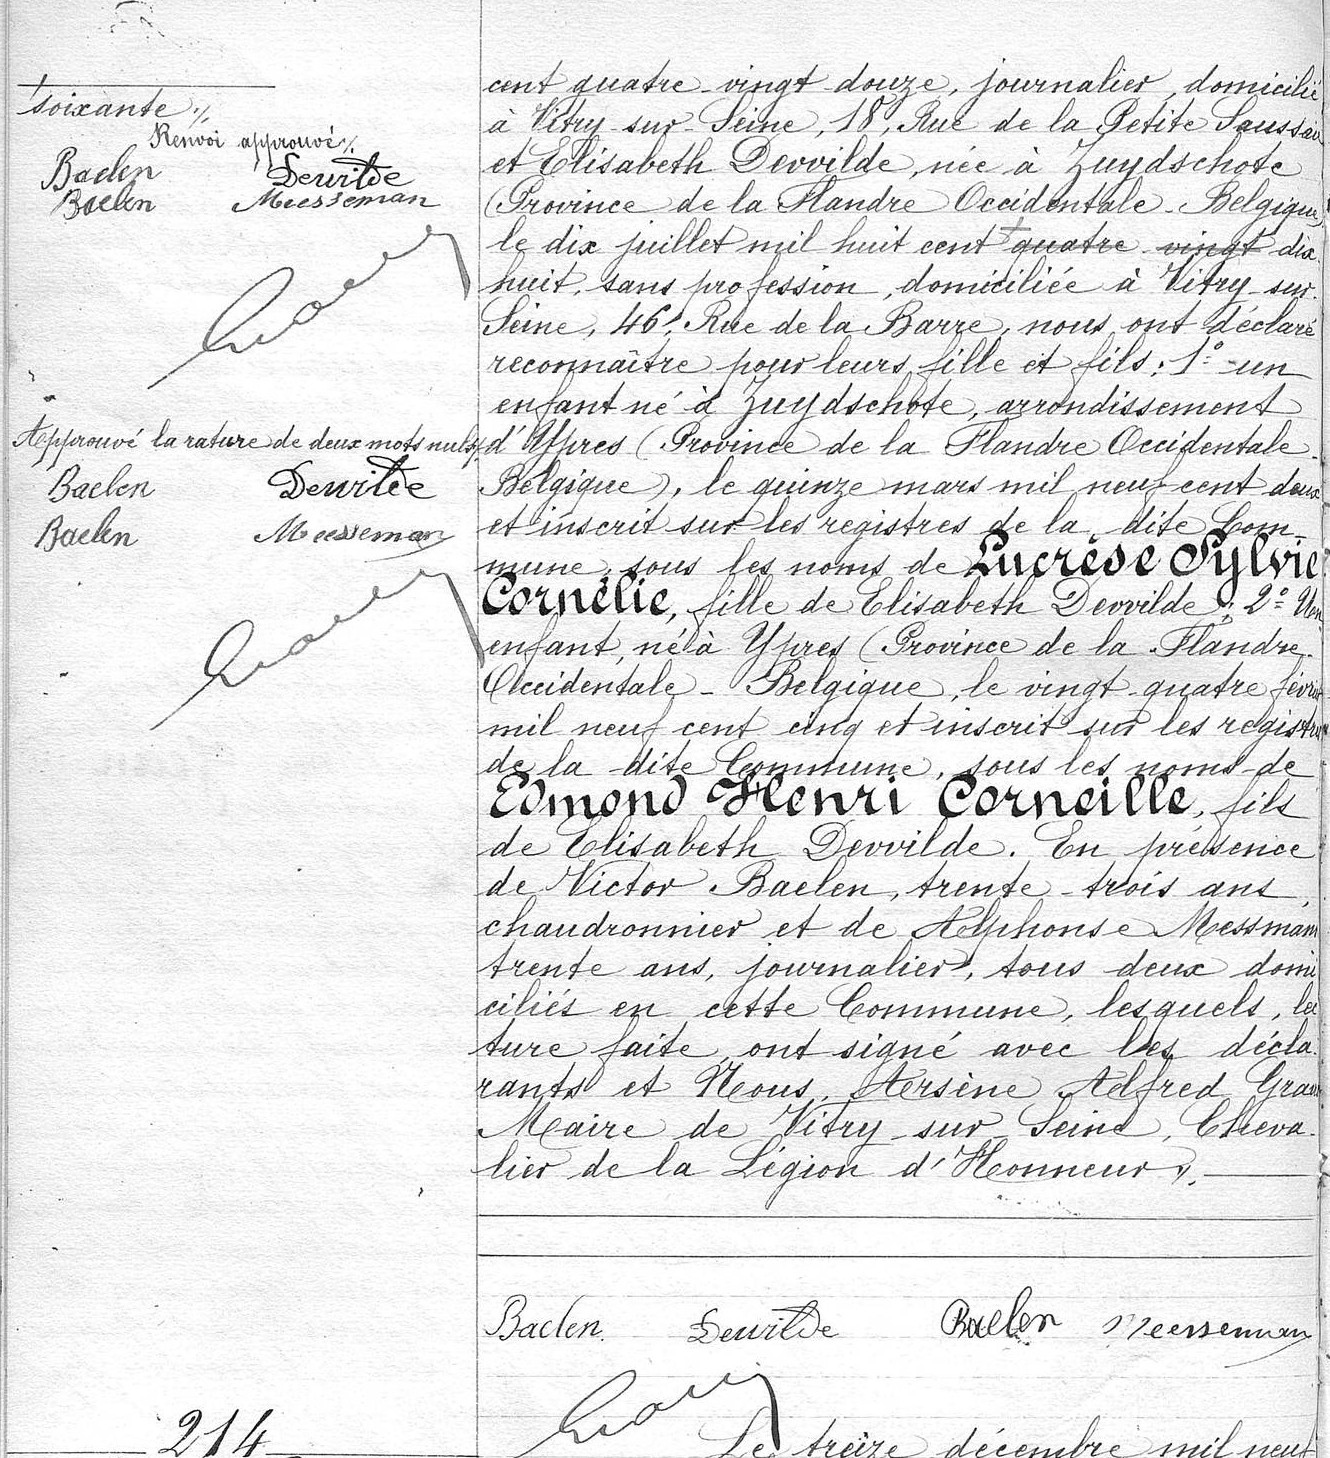 soixante //
Renvoi approuvé //
Baelen Dewilde
Baelen Meesseman
Approuvé la rature de deux mots nuls //
Baelen Dewilde
Baelen Meesseman
214
cent quatre-vingt douze, journalier, domicilié
à Vitry-sur-Seine, 18, Rue de la Petite Saussaie
et Elisabeth Devvilde, née à Zuydschote
(Province de la Flandre Occidentale - Belgique)
le dix juillet mil huit cent + quatre-vingt dix-
huit, sans profession, domiciliée à Vitry-sur-
Seine, 46, Rue de la Barre, nous ont déclaré
reconnaître pour leurs fille et fils : 1° un
enfant né à Zuydschote, arrondissement
d'Ypres (Province de la Flandre Occidentale -
Belgique), le quinze mars mil neuf cent deux
et inscrit sur les registres de la dite Com-
mune, sous les noms de Lucrèse Sylvie
Cornélie, fille de Elisabeth Devvilde ; 2° Un
enfant, né à Ypres (Province de la Flandre
Occidentale - Belgique, le vingt-quatre févri
mil neuf cent cinq et inscrit sur les registr
de la dite Commune, sous les noms de
Edmond Henri Corneille, fils
de Elisabeth Devvilde. En présence
de Victor Baelen, trente-trois ans,
chaudronnier et de Alphonse Messmann
trente ans, journalier, tous deux domi
ciliés en cette Commune, lesquels, lec
ture faite, ont signé avec les décla-
rants et Nous, Arsène Alfred
Maire de Vitry-sur-Seine, Cheva-
lier de la Légion d'Honneur //.
Baelen Dewilde Baelen Meesseman
Le treize décembre mil neuf